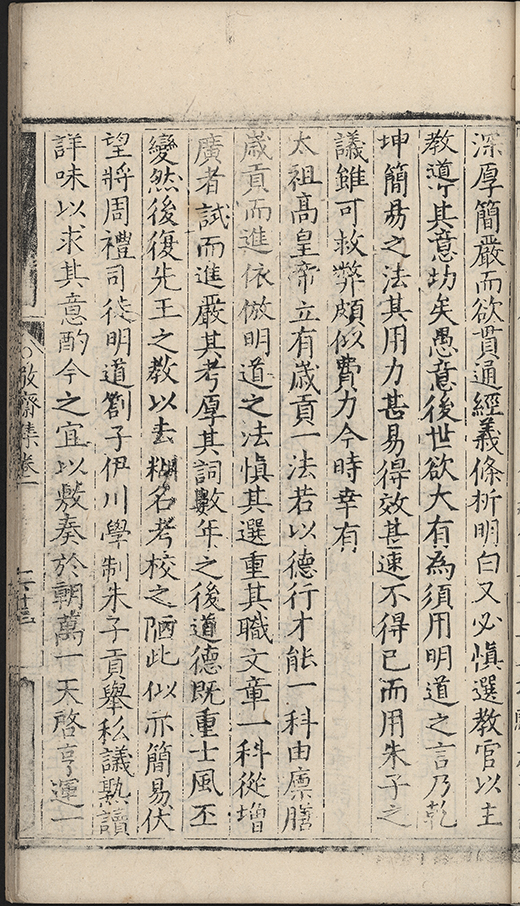 深厚簡嚴而欲貫通經義條析明白又必慎選教官以主
教道丁其意切矣愚意後世欲大有為須用明道之言乃乾
坤簡昜之法其用力甚易得效甚速不得已而用朱子之
議雖可救弊頗似費力今時幸有
太祖高皇帝立有歲貢一法若以德行才能一科由廪膳
歲貢而進依倣明道之法慎其選重其職文章一科從增
廣者試而進嚴其考厚其詞數年之後道德既重士風丕
變然後復先王之教以去糊名考校之陋此似亦簡易伏
望將周禮司徒明道劄子伊川學制朱子貢舉私議熟讀
詳味以求其意酌今之宜以敷奏於朝萬一天啓亨運一
敬齋集卷一